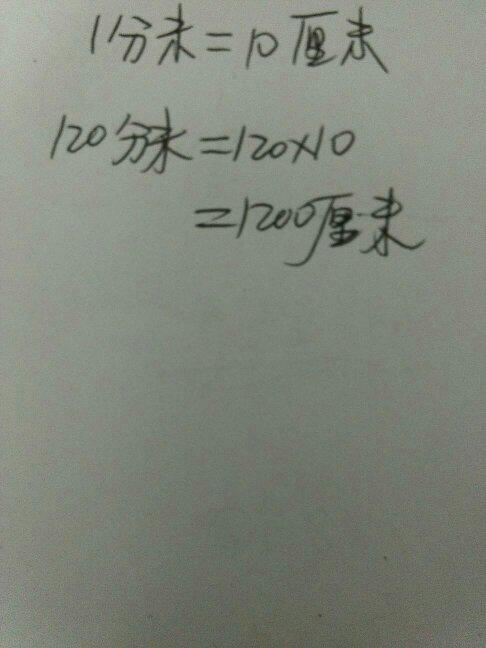 1分米=10厘米
120分米=120×10
=1200厘米